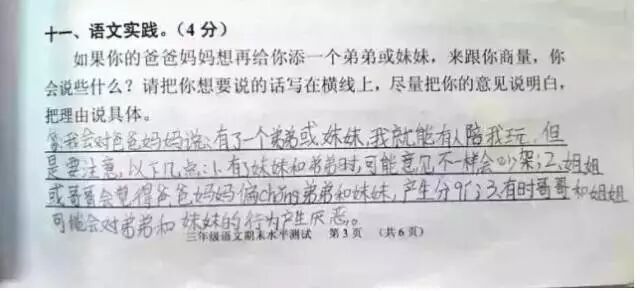 十一、语文实践。(4分)
如果你的爸爸妈妈想再给你添一个弟弟或妹妹，来跟你商量，你
会说些什么？请把你想要说的话写在横线上，尽量把你的意见说明白，
把理由说具体。
我会对爸爸妈妈说：有了一个弟弟或妹妹，我就能有人陪我玩。但
是要注意以下几点：1、有了妹妹和弟弟时，可能意见不一样会吵架；2、姐姐
或哥哥会觉得爸爸妈妈偏chǒng弟弟和妹妹，产生分歧；3、有时哥哥和姐姐
可能会对弟弟和妹妹的行为产生厌恶。
三年级语文期末水平测试 第3页 (共6页)